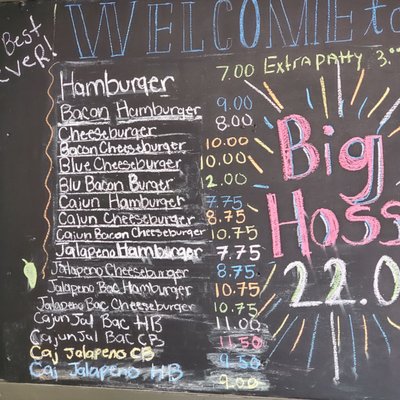 Best
Ever!
WELCOME to
Hamburger 7.00 Extra patty 3.
Bacon Hamburger 9.00
Cheeseburger 8.00
Bacon Cheeseburger 10.00
Blue Cheeseburger 10.00
Blu Bacon Burger 2.00
Cajun Hamburger 7.75
Cajun Cheeseburger 8.75
Cajun Bacon Cheeseburger 10.75
Jalapeno Hamburger 7.75
Jalapeno Cheeseburger 8.75
Jalapeno Bac Hamburger 10.75
Jalapeno Bac Cheeseburger 10.75
Cajun Jal Bac HB 11.00
Cajun Jal Bac CB 11.50
Caj Jalapeno CB 9.50
Caj Jalapeno HB 9.00
Big
Hoss
22.0